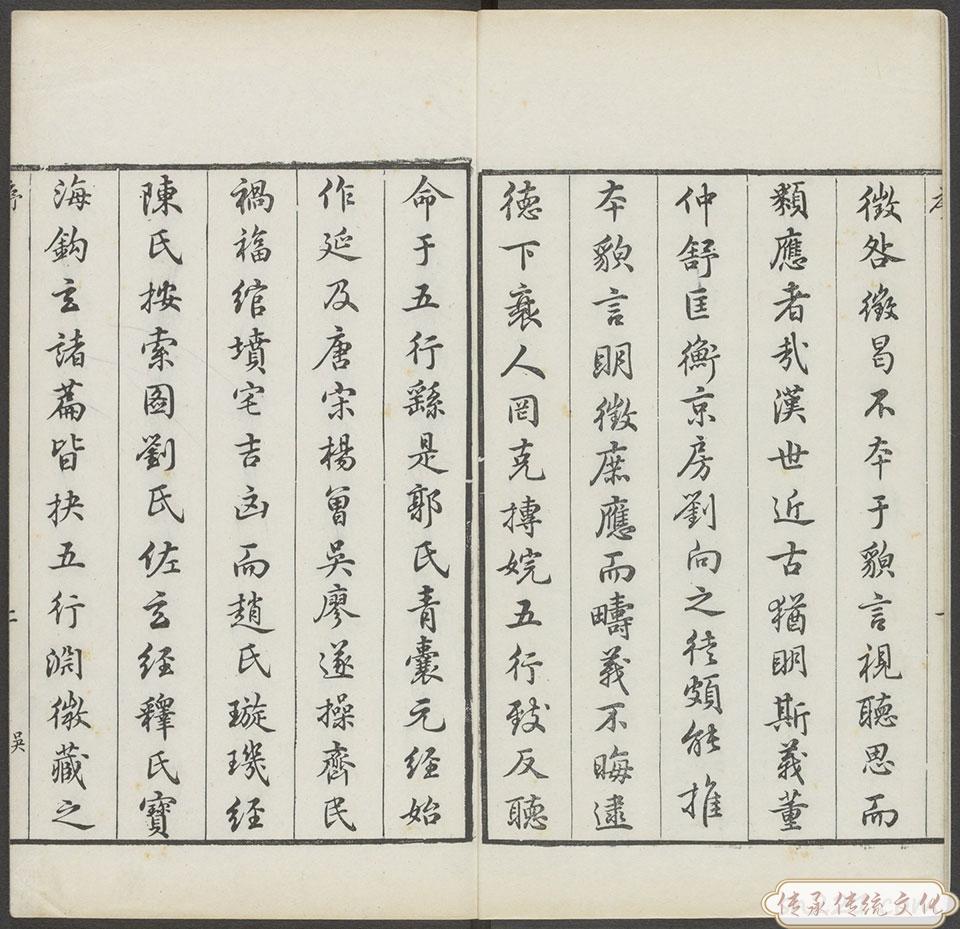 徵咎徵曷不本于貌言視聽思而
類應者哉漢世近古猶明斯義董
仲舒匡衡京房劉向之徒頗能推
本貌言明徵庶應而疇義不晦逮
德下衰人罔克摶埦五行致反聽
命于五行繇是郭氏青囊元經始
作延及唐宋楊曾吳廖遂操齊民
禍福綰墳宅吉凶而趙氏璇璣經
陳氏按索圖劉氏佐玄經釋氏寶
海鈎玄諸篇皆抉五行淵微藏之
序
二
吳
传承传统文化